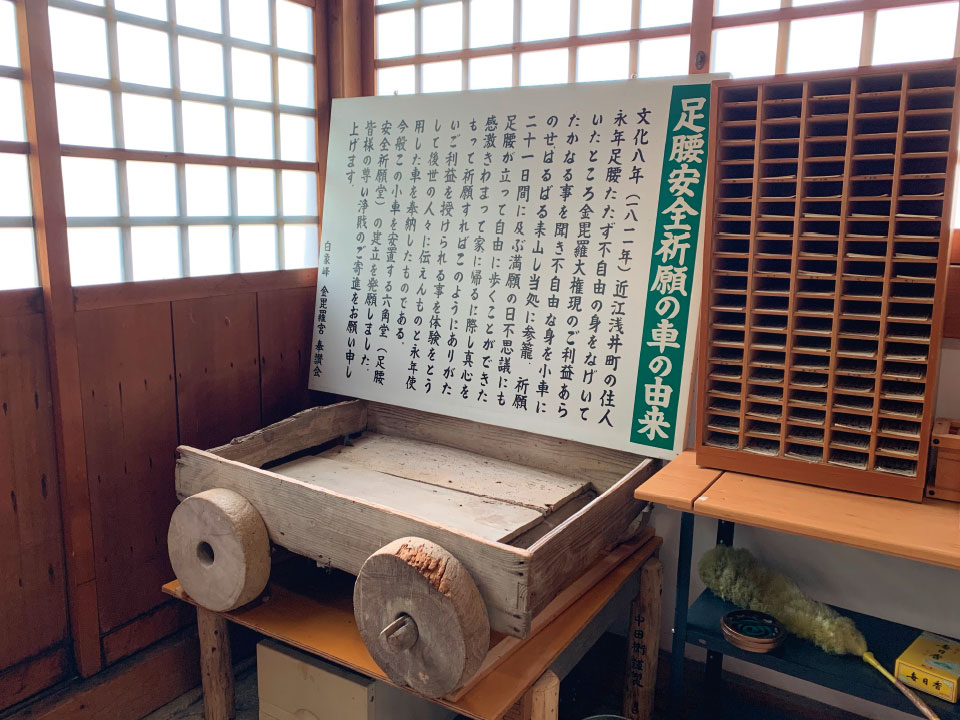 足腰安全祈願の車の由来
文化八年（一八一二年）近江浅井町の住人
永年足腰たたず不自由の身をなげいて
いたところ金毘羅大権現のご利益あら
たかなる事を聞き不自由な身を小車に
のせはるばる来山し当処に参籠、祈願
二十一日間に及ぶ満願の日不思議にも
足腰が立って自由に歩くことができた
感激きわまって家に帰るに際し真心を
もって祈願すればこのようにありがた
いご利益を授けられる事を体験をとう
して後世の人々に伝えんものと永年使
用した車を奉納したものである。
今般この小車を安置する六角堂（足腰
安全祈願堂）の建立を発願しました。
皆様の尊い浄財のご寄進をお願い申し
上げます。
白象峰 金毘羅宮 奉讃会
毎日香